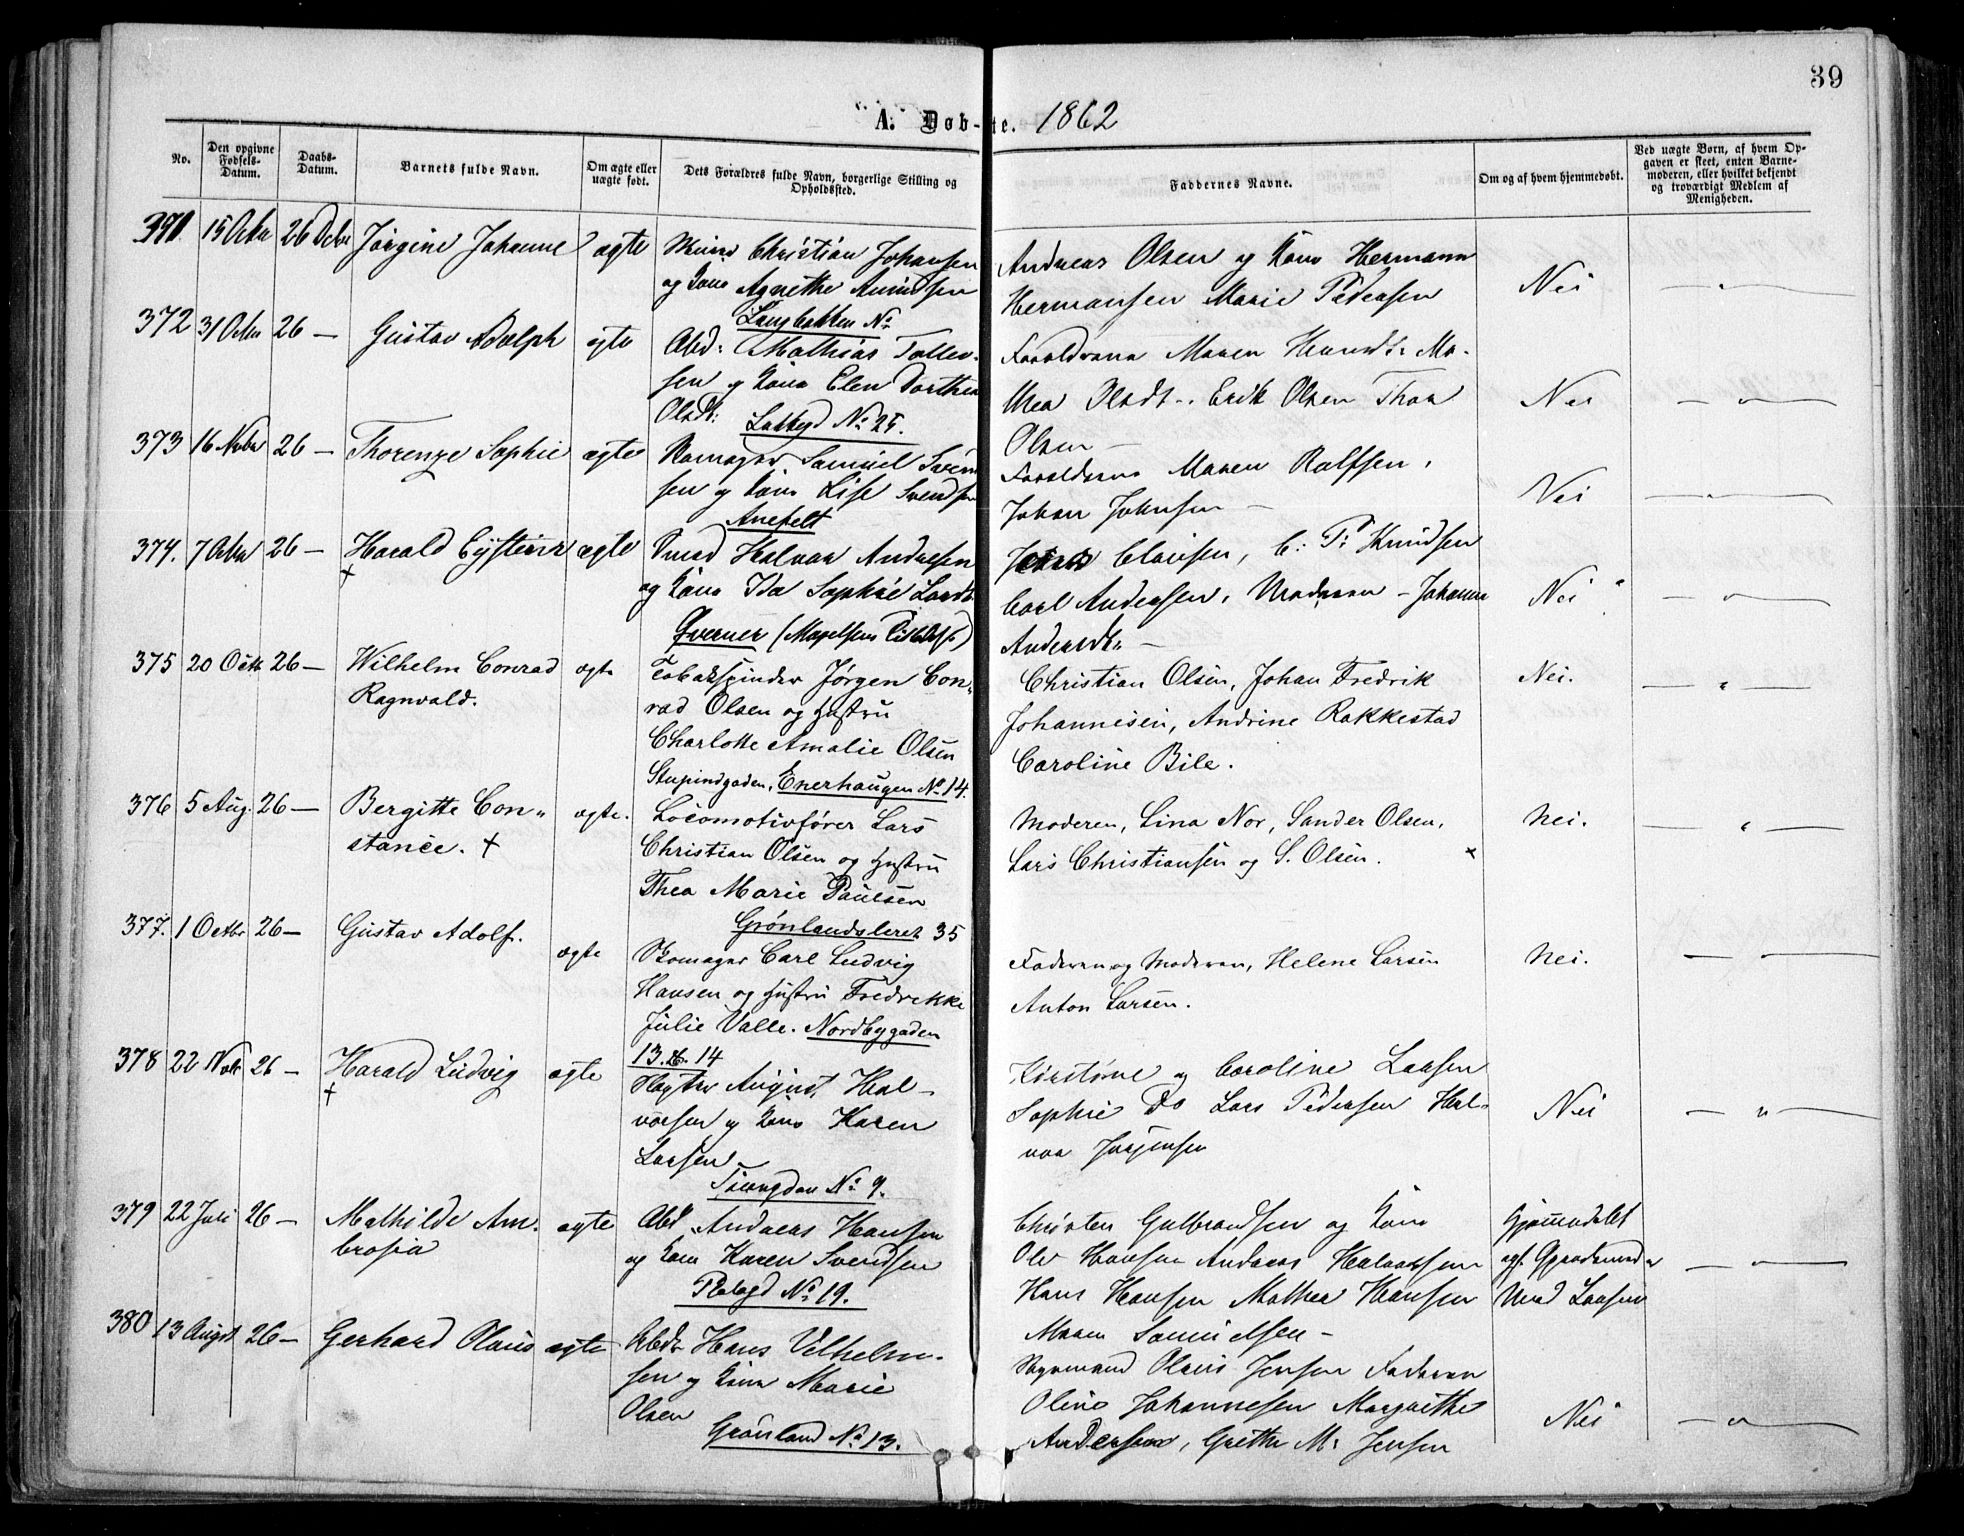 39
A. Døb-te. 1862
No.
Den opgivne Fødsels-Datum.
Daabs-Datum.
Barnets fulde Navn.
Om ægte eller uægte født.
Dets Forældres fulde Navn, borgerlige Stilling og Opholdssted.
Faddernes Navne.
Om og af hvem hjemmedøbt.
Ved uægte Børn, af hvem Opgaven er skeet, enten Barnemoderen, eller hvilket bekjendt og troværdigt Medlem af Menigheden.
371 15 Octbr 26 Decbr Jørgine Johanne ægte
Christian Johansen
og Kone Agnethe Amundsen
Langbakken No
Andreas Olsen og Kone Hermann
Hermansen Marie Pedersen
Nei
372 31 Octbr 26 — Gustav Adolph ægte
Abd: Mathias Tollev-
sen og Kone Elen Dorthea
Olsdt: Lakkegd No 25.
Forældrene Maren Hansdt: Ma-
thea Olsdt. Erik Olsen Thor
Olsen —
Nei
373 16 Novbr 26 — Thorenze Sophie ægte
Skomager Samuel Svend-
sen og Kone Lise Svendsen
Anefelt
Forældrene Maren Rolfsen,
Johan Johnsen —
Nei
374. 7 Octbr 26 — Harald Eystein ægte
†
Smed Halvor Andersen
og Kone Ida Sophie Lardt
Qverner
Clausen, C: P: Knudsen
Carl Andersen, Moderen — Johanne
Andersdt. —
Nei
375 20 Octb 26 — Wilhelm Conrad ægte
Ragnvald.
Tobakspinder Jørgen Con-
rad Olsen og Hustru
Charlotte Amalie Olsen
Stupindgaden, Enerhaugen No 14.
Christian Olsen, Johan Fredrik
Johannesen, Andrine Rakkestad
Caroline Bile.
Nei.
376 5 Aug. 26 — Bergitte Con- ægte.
stance. †
Locomotivfører Lars
Christian Olsen og Hustru
Thea Marie Paulsen
Grønlandsleret 35
Moderen, Lina Nor, Sander Olsen,
Lars Christiansen og S. Olsen.
Nei.
377. 1 Octbr 26 — Gustav Adolf. ægte
Skomager Carl Ludvig
Hansen og Hustru Fredrikke
Julie Valle. Nordbygaden
13 & 14
Faderen og Moderen, Helene Larsen
Anton Larsen.
Nei.
378 22 Novbr 26 — Harald Ludvig ægte
†
Slagter August Hal-
vorsen og Kone Karen
Larsen
No 9.
Kirstine og Caroline Larsen
Sophie Do Lars Pedersen Hal-
vor Jørgensen
Nei
379 22 Juli 26 — Mathilde Am- ægte
brosia
Abd Andreas Hansen
og Kone Karen Svendsen
Platogd No 19.
Christen Gulbrandsen og Kone
Ole Hansen Andreas Halvorsen
Hans Hansen Mathea Hansen
Maren Samuelsen —
Hjemmedøbt
af Gjordemod-
Larsen
380 13 August 26 — Gerhard Olaus ægte
Arbdr Hans Velhelm-
sen og Kone Marie
Olsen
Grønland No 13.
Olaus Jensen Faderen
Oline Johannesen Margrethe
Andersen, Grethe M: Jensen
Nei